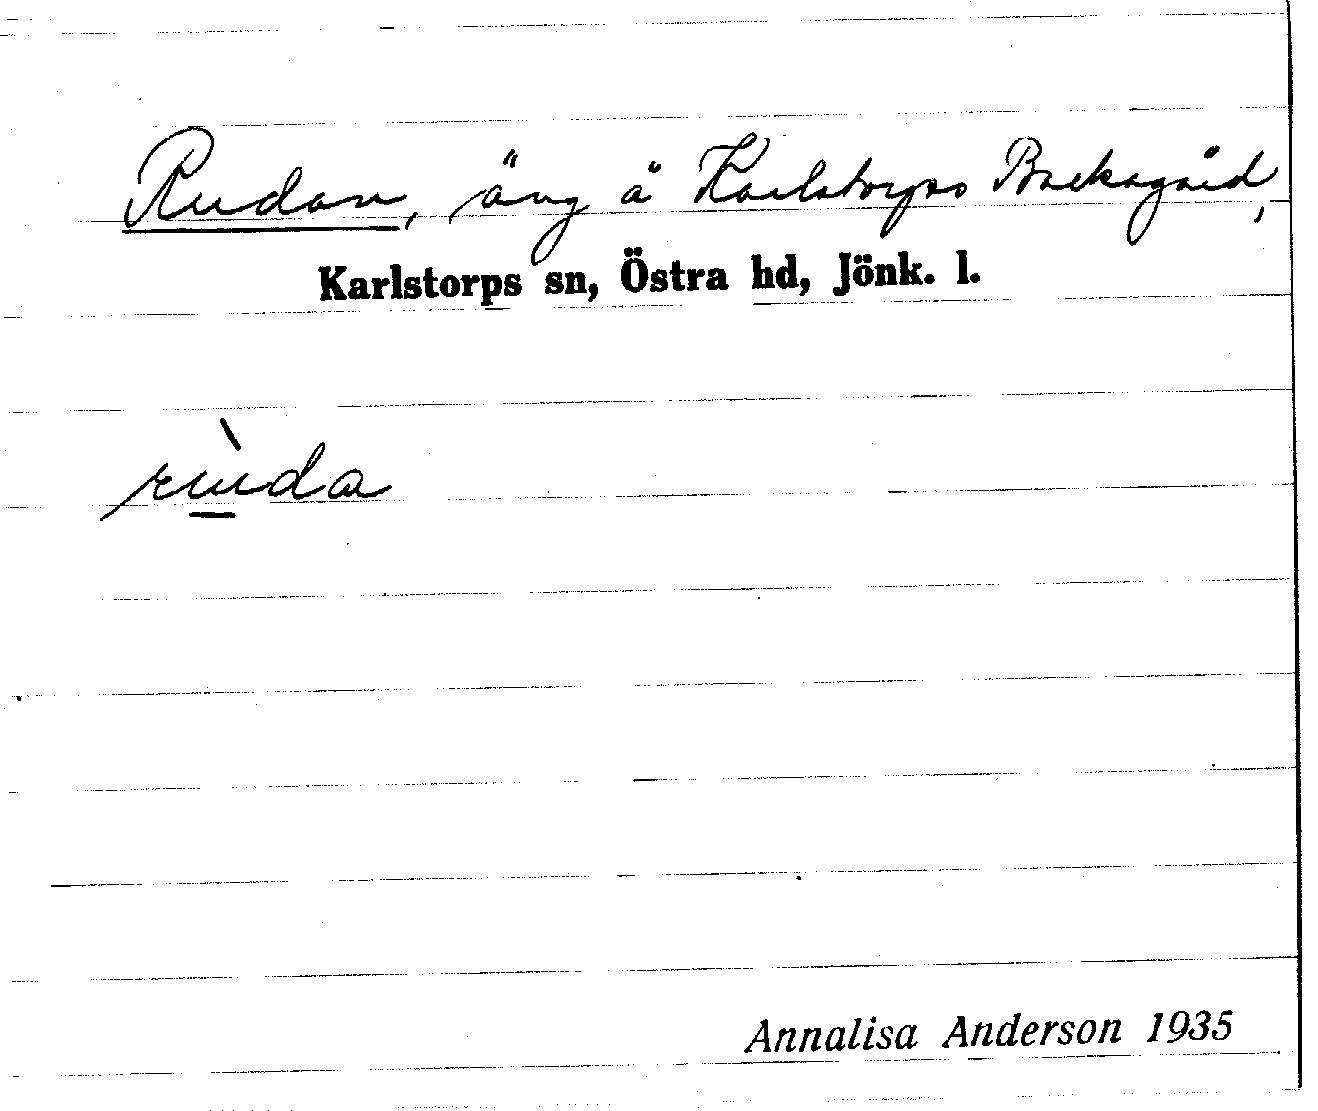 Rudan, äng å Karlstorps Backagård,
Karlstorps sn, Östra hd, Jönk. l.
rùda
Annalisa Anderson 1935